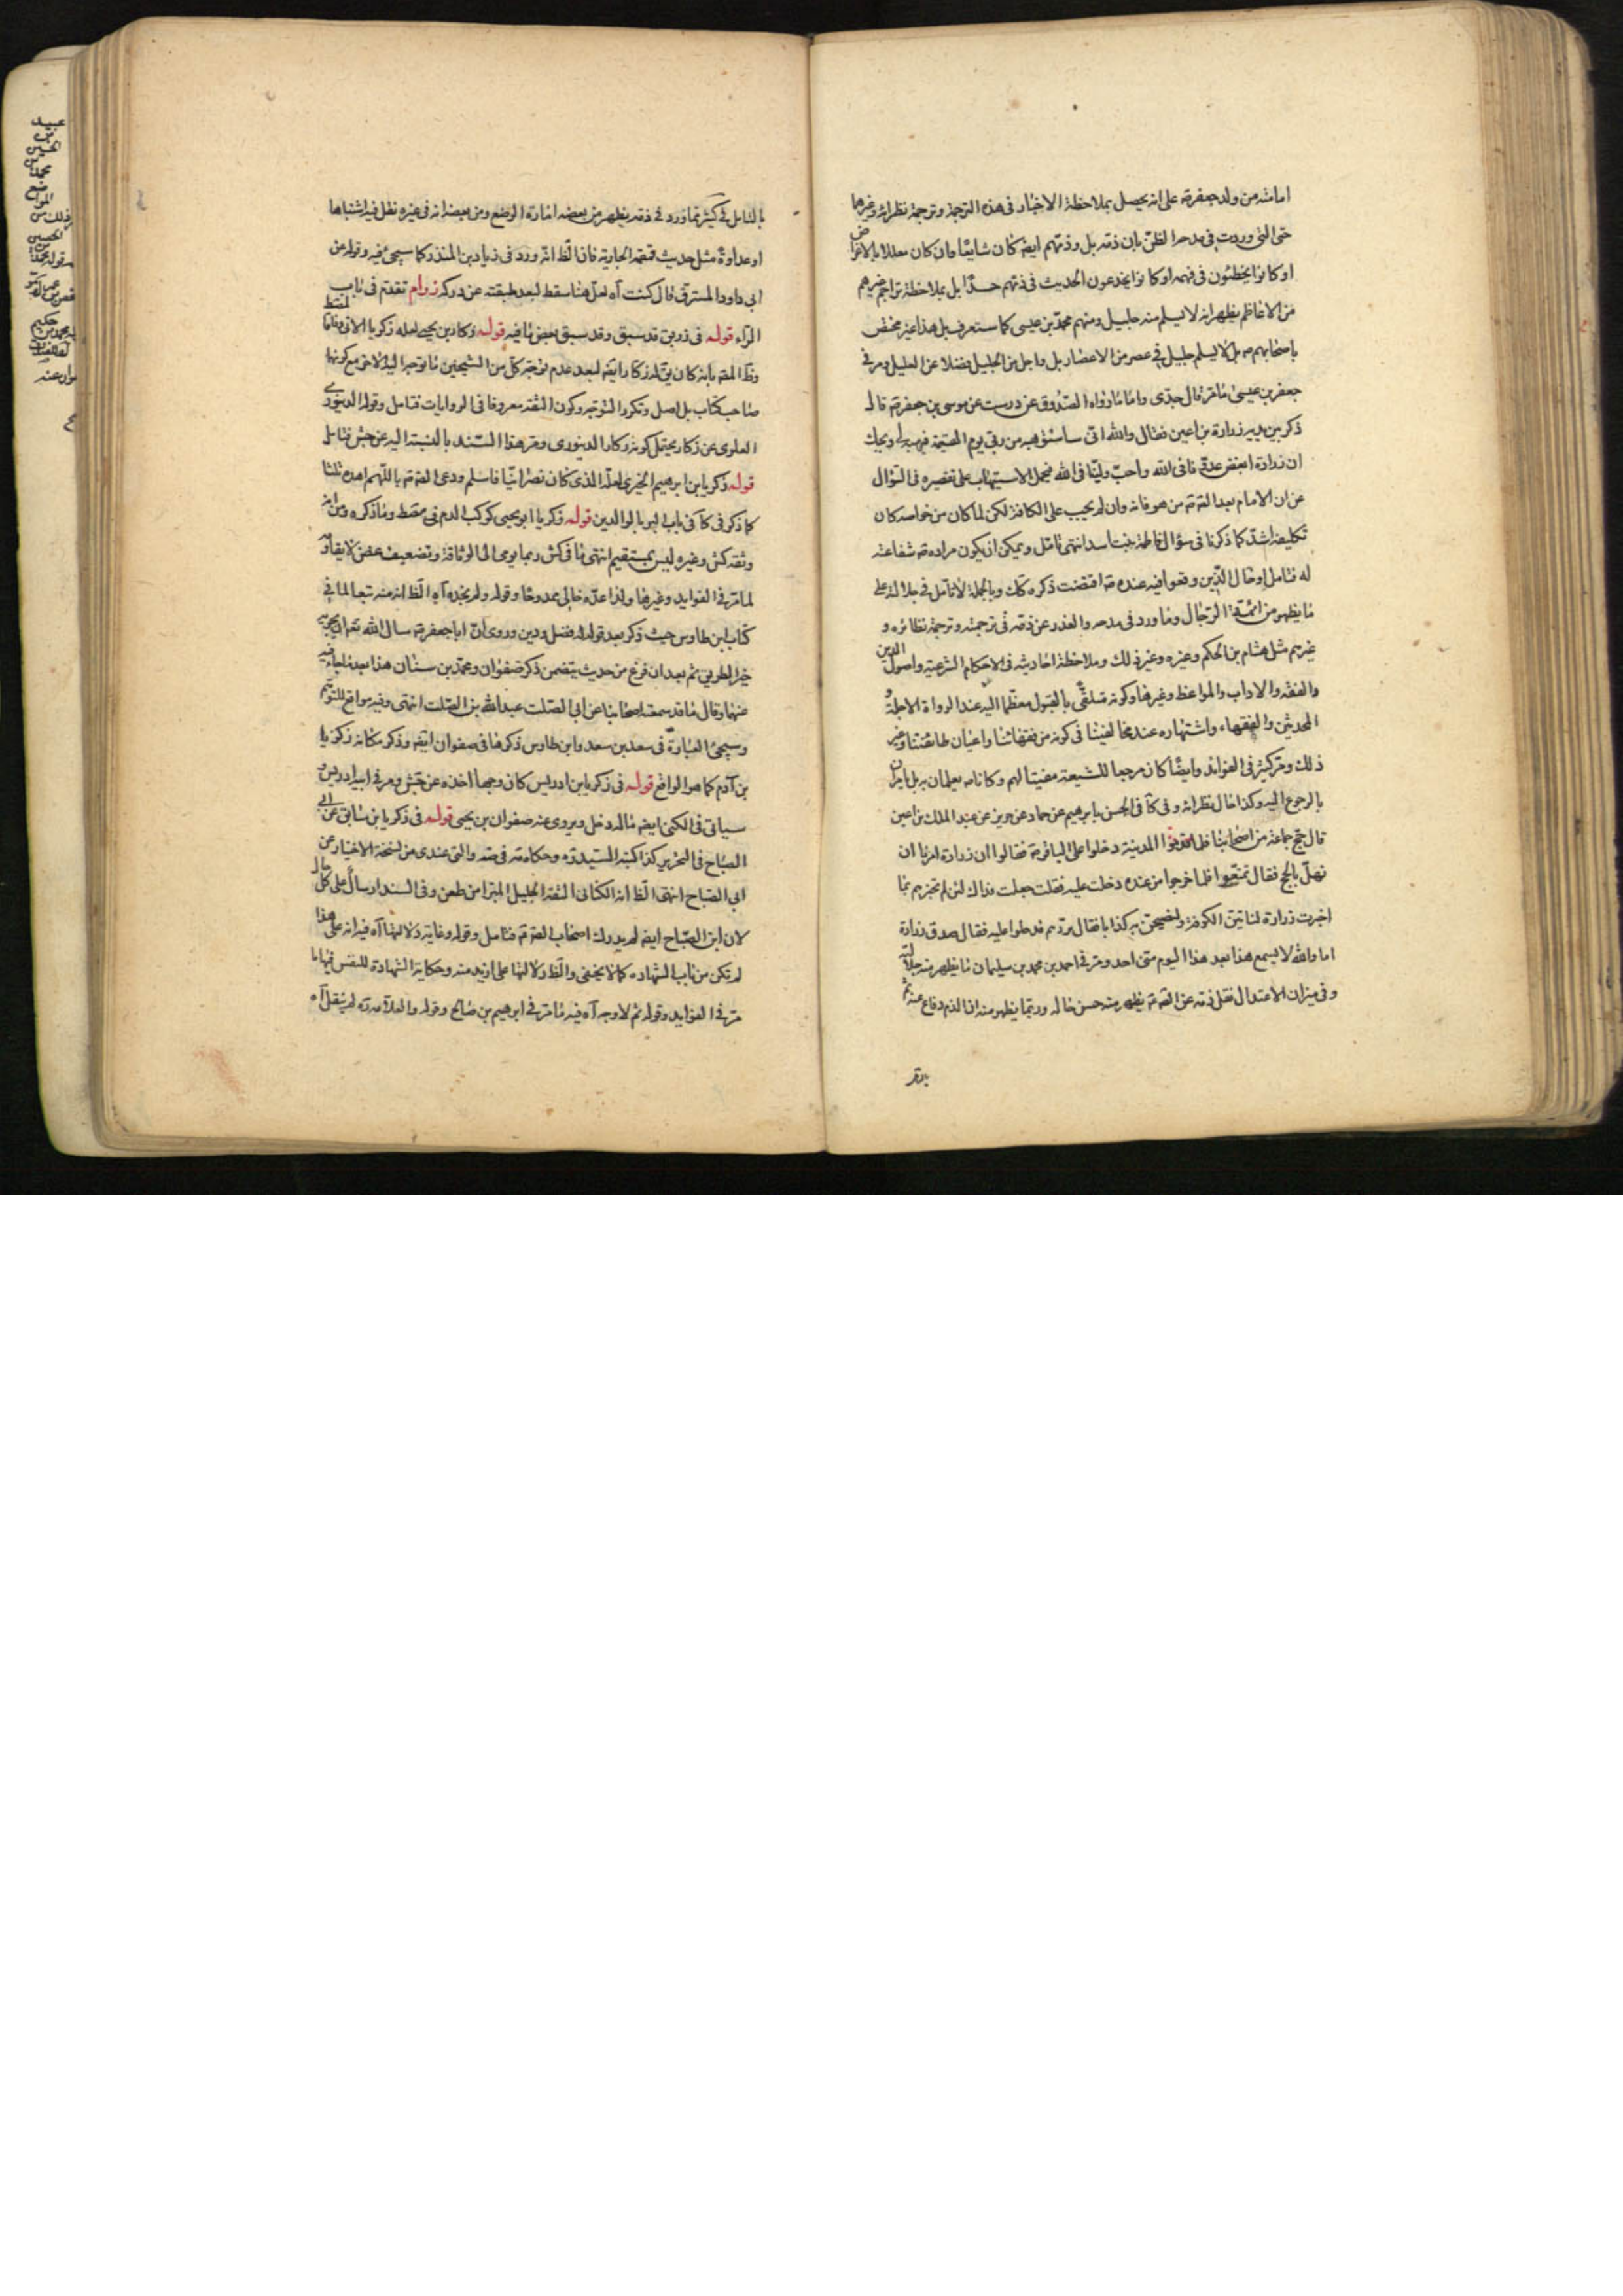 امامته من ولد جعفر ع على انه يحصل بملاحظة الاخبار فى هذه الترجمة وترجمة نظرائه وغيرهما
حتى التى وردت فى مدحه الظن بان ذمه بل وذمهم ايضا كان شايعا وان كان معللا بالاغراض
او كانوا يخطئون فى فهمه او كانوا يخدعون الحديث فى ذمهم حسدا بل بملاحظة تراجم غيرهم
من الاعاظم يظهر انه لا يسلم منه جليل ومنهم محمد بن عيسى كما ستعرف بل هذا غير مختص
باصحابهم ع بل لا يسلم جليل فى عصر من الاعصار بل واجل من الجليل فضلا عن الجليل ومر فى
جعفر بن عيسى ما مر قال جدى واما ما رواه الصدوق عن درست عن موسى بن جعفر ع قال
ذكر بين يديه زرارة بن اعين فقال والله انى ساستوهبه من ربى يوم القيمة فيهبه لى ويحك
ان زرارة ابغض عدونا فى الله واحب ولينا فى الله فيحمل الاستيهاب على تقصيره فى السؤال
عن ان الامام بعد الصادق ع من هو فانه وان لم يجب على الكافة لكن لما كان من خواصه كان
تكليفه اشد كما ذكرنا فى سؤال فاطمة بنت اسد انتهى تامل ويمكن ان يكون مراده ع شفاعته
له فتامل او حال الذين وقعوا فيه عنده ع اقتضت ذكره كذلك وبالجملة لا تامل فى جلالته على
ما يظهر من ائمة الرجال وما ورد فى مدحه والعذر عن ذمه فى ترجمته وترجمة نظائره و
غيرهم مثل هشام بن الحكم وغيره وغير ذلك وملاحظة احاديثه فى الاحكام الشرعية واصول الدين
والفقه والاداب والمواعظ وغيرها وكونه متلقى بالقبول معظما اليه عند الرواة الاجلة و
المحدثين والفقهاء واشتهاره عند مخالفينا فى كونه من فقهائنا واعيان طائفتنا وغير
ذلك ومر كثير فى الفوائد وايضا كان مرجعا للشيعة مفتيا لهم وكانا ع يعلمان به بل يامران
بالرجوع اليه وكذا حال نظرائه وفى كا فى الحسن بابرهيم عن حماد عن حريز عن عبد الملك بن اعين
قال حج جماعة من اصحابنا فلما قدموا المدينة دخلوا على الباقر ع فقالوا ان زرارة امرنا ان
نهل بالحج فقال تمتعوا فلما خرجوا من عنده دخلت عليه فقلت جعلت فداك لئن لم تخبرهم بما
اخبرت زرارة لناتين الكوفة ولنصبحن به كذابا فقال ردهم فدخلوا عليه فقال صدق زرارة
اما والله لا يسمع هذا بعد هذا اليوم منى احد ومر فى احمد بن محمد بن سليمان ما يظهر منه جلالته
وفى ميزان الاعتدال نقل ذمه عن الصادق ع يظهر منه حسن حاله وربما يظهر منه ان الذم دفاع عنه ثم
بالتامل فى كثير مما ورد فى ذمه يظهر من بعضه امارة الوضع ومن بعضه انه فى غيره نقل فيه اشتباها
او عداوة مثل حديث قصة الجارية فان الظ انه ورد فى زياد بن المنذر كما سيجئ فيه وقوله عن
ابى داود المسترق قال كنت آه لعل هنا سقط لبعد طبقته عن دركه زوام تقدم فى باب
الراء قوله فى زريق قد سبق وقد سبق بعض ما فيه قوله زكار بن يحيى لعله زكريا الاتى وفاقا لمقط
وظ المصه بانه كان يق له زكار ايضا لبعد عدم توجه كل من الشيخين ما توجه اليه الاخر مع كونهما
صاحب كتاب بل اصل وتكرر التوجه وكون الثقة معروفا فى الروايات فتامل وقوله الدينورى
العلوى عن زكار يحتمل كونه زكار الدينورى ومر هذا السند بالنسبة اليه عن جش فتامل
قوله زكريا بن ابرهيم الخيرى لعله الذى كان نصرانيا فاسلم ودعى الصادق ع باللهم اهده ثلثا
كما ذكر فى كا فى باب البر بالوالدين قوله زكريا ابو يحيى كوكب الدم فى مقط وما ذكره من انه
وثقه كش وغيره ليس بمستقيم انتهى ما فى كش ربما يومى الى الوثاقة وتضعيف غض لا يقاومه
لما مر فى الفوايد وغيرها ولذا عده خالى ممدوحا وقوله ولم يجده آه الظ انه منه تبعا لما فى
كتاب ابن طاوس حيث ذكر بعد قوله له فضل ودين وروى ان ابا جعفر ع سال الله تعالى ان يجزيه
خيرا لطريق ثم بعد ان فرغ من حديث يتضمن ذكر صفوان ومحمد بن سنان هذا بعد ما جاء فيه
عنهما وقال ما قد سمعته اصحابنا عن ابى الصلت عبد الله بن الصلت انتهى وفيه مواقع للتوهم
وسيجئ العبارة فى سعد بن سعد وابن طاوس ذكرها فى صفوان ايضا وذكر مكانه زكريا
بن آدم كما هو الواقع قوله فى زكريا بن ادريس كان وجها اخذه عن جش ومر فى ابيه ادريس و
سياتى فى الكنى ايضا ما له دخل ويروى عنه صفوان بن يحيى قوله فى زكريا بن سابق عن ابى
الصباح فى التحرير كذا كتبه السيد ره وحكاه فى صه والتى عندى من نسخة الاختيار عن
ابى الصباح انتهى الظ انه الكنانى الثقة الجليل المبرا من طعن وفى السند ارسال على كل حال
لان ابن الصباح ايضا لم يدرك اصحاب الصادق ع فتامل وقوله وغاية دلالتها آه فيه انه على هذا
لم تكن من باب الشهاده كما لا يخفى والظ دلالتها على ازيد منه وحكاية الشهادة للنفس فيها ما
مر فى الفوايد وقوله ثم لا وجه آه فيه ما مر فى ابرهيم بن صالح وقوله والعلامة ره لم ينقل آه